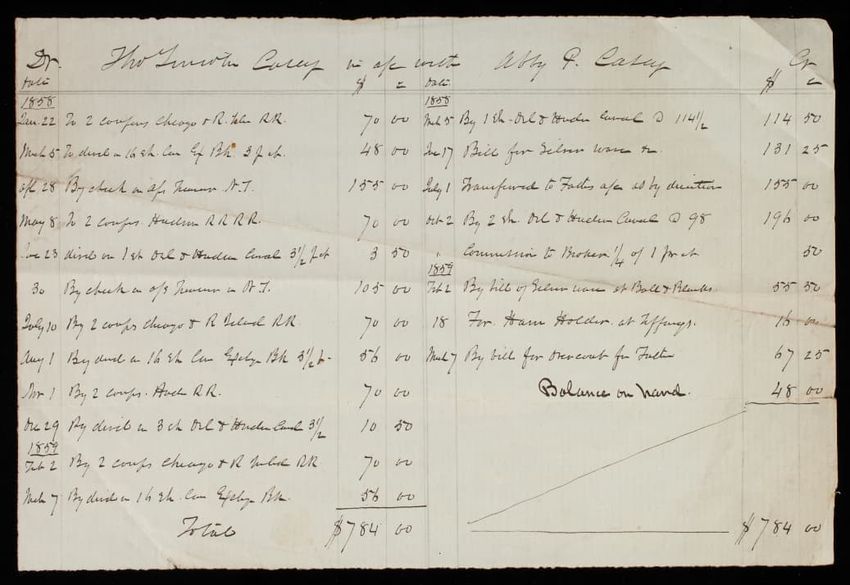 Dr. Tho Lincoln Casey in a/c with Abby P. Casey Cr
Date $ c
1858
Jan. 22 To 2 coupons Chicago & R. Isld RR. 70 00
Mch 5 To divid on 16 sh. Con Ex Bk. 3 p ct. 48 00
Apl 28 By check on a/s Treasurer N.Y. 155 00
May 8 To 2 coups Hudson R R R. 70 00
June 23 divid on 1 sh Del & Hudson Canal 3½ p ct 3 50
30 By check on a/s Treasurer in N.Y. 105 00
July 10 By 2 coups Chicago & R Island RR 70 00
Aug 1 By divid on 16 sh Con Exchge Bk 3½ p. 56 00
Nov 1 By 2 coups. Huds RR. 70 00
Dec 29 By divid on 3 sh Del & Hudson Canl 3½ 10 50
1859
Feb 2 By 2 coups Chicago & R Island RR 70 00
Mch 7 By divid on 16 sh. Con Exchge Bk. 56 00
Total $784 00
Date $ c
1858
Mch 5 By 1 Sh. Del & Hudson Canal @ 114½ 114 50
Jue 17 Bill for Silver ware &c. 131 25
July 1 Transferred to Fathers a/c as by direction 155 00
Oct 2 By 2 Sh. Del & Hudson Canal @ 98 196 00
" Commission to Broker ¼ of 1 pr ct 50
1859
Feb 2 By bill of Silver ware at Ball & Blacks 55 50
18 For Ham Holder at Tiffanys. 16 00
Mch 7 By bill for overcoat for Father 67 25
Balance on hand. 48 00
$784 00